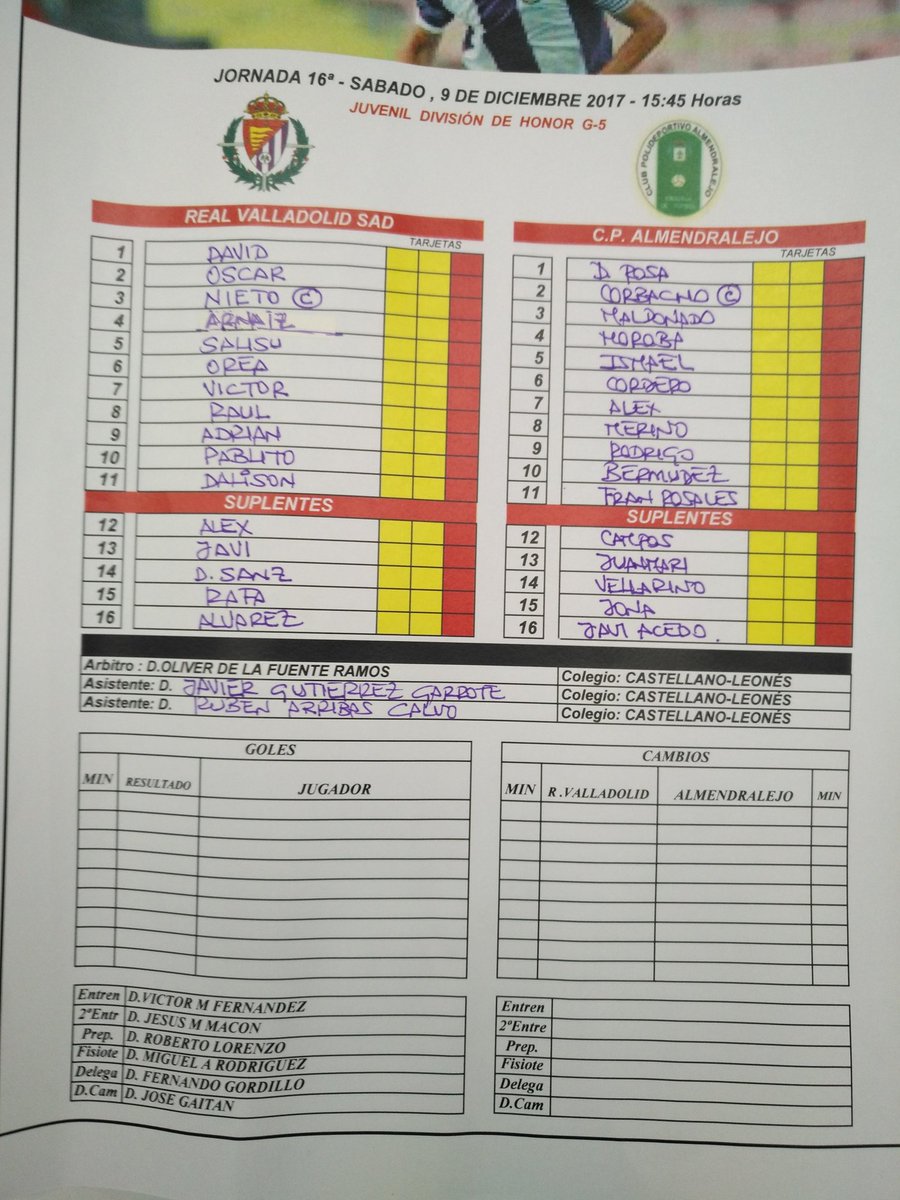 JORNADA 16ª - SABADO , 9 DE DICIEMBRE 2017 - 15:45 Horas
JUVENIL DIVISIÓN DE HONOR G-5
CLUB POLIDEPORTIVO ALMENDRALEJO
REAL VALLADOLID SAD
TARJETAS
1 DAVID
2 OSCAR
3 NIETO C
4 ARNAIZ
5 SALISU
6 OREA
7 VICTOR
8 RAUL
9 ADRIAN
10 PABLITO
11 DALISON
SUPLENTES
12 ALEX
13 JAVI
14 D. SANZ
15 RAFA
16 ALVAREZ
C.P. ALMENDRALEJO
TARJETAS
1 D. ROSA
2 CORBACHO C
3 MALDONADO
4 MOROBA
5 ISMAEL
6 CORDERO
7 ALEX
8 MERINO
9 RODRIGO
10 BERMUDEZ
11 FRAN ROSALES
SUPLENTES
12 CAMPOS
13 JUANMARI
14 VELLARINO
15 JONA
16 JAVI ACEDO.
Arbitro : D.OLIVER DE LA FUENTE RAMOS Colegio: CASTELLANO-LEONÉS
Asistente: D. JAVIER GUTIERREZ GARROTE Colegio: CASTELLANO-LEONÉS
Asistente: D. RUBEN ARRIBAS CALVO Colegio: CASTELLANO-LEONÉS
GOLES
MIN RESULTADO JUGADOR
CAMBIOS
MIN R.VALLADOLID ALMENDRALEJO MIN
Entren D.VICTOR M FERNANDEZ
2ºEntr D. JESUS M MACON
Prep. D. ROBERTO LORENZO
Fisiote D. MIGUEL A RODRIGUEZ
Delega D. FERNANDO GORDILLO
D.Cam D. JOSE GAITAN
Entren
2ºEntre
Prep.
Fisiote
Delega
D.Cam